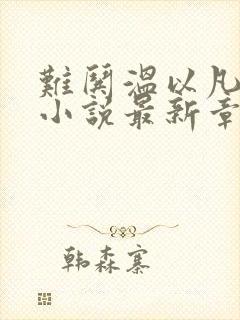 難鬨溫以凡
小說最新章
韩森寨